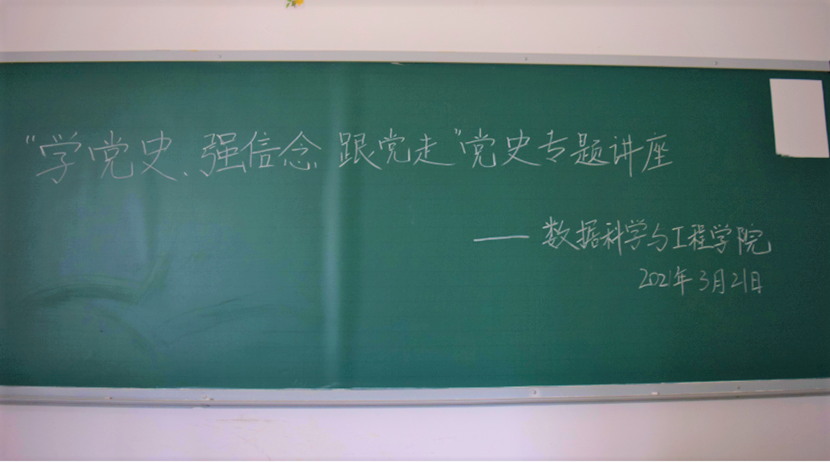 “学党史、强信念 跟党走”党史专题讲座
—— 数据科学与工程学院
2021年3月21日